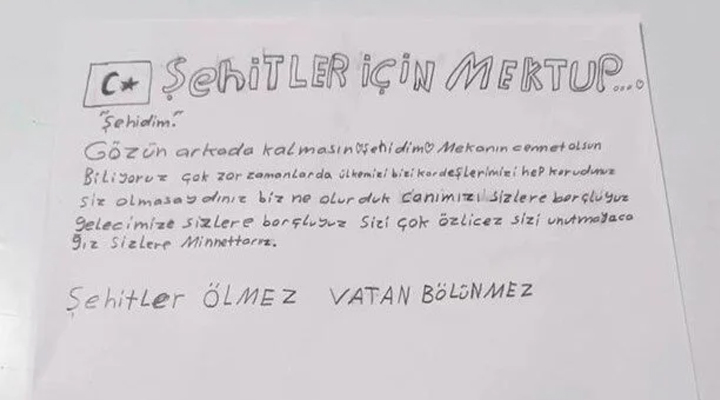 ŞehiTLER iÇiN MEKTUP...
"Şehidim."
Gözün arkada kalmasın♡şehidim♡ Mekanın cennet olsun
Biliyoruz çok zor zamanlarda ülkemizi bizi kardeşlerimizi hep korudunuz
siz olmasaydınız biz ne olurduk canımızı sizlere borçluyuz
gelecimize sizlere borçluyuz sizi çok özlicez sizi unutmayaca
ğız sizlere Minnettarız.
Şehitler ÖLMEZ VATAN BÖLÜNMEZ